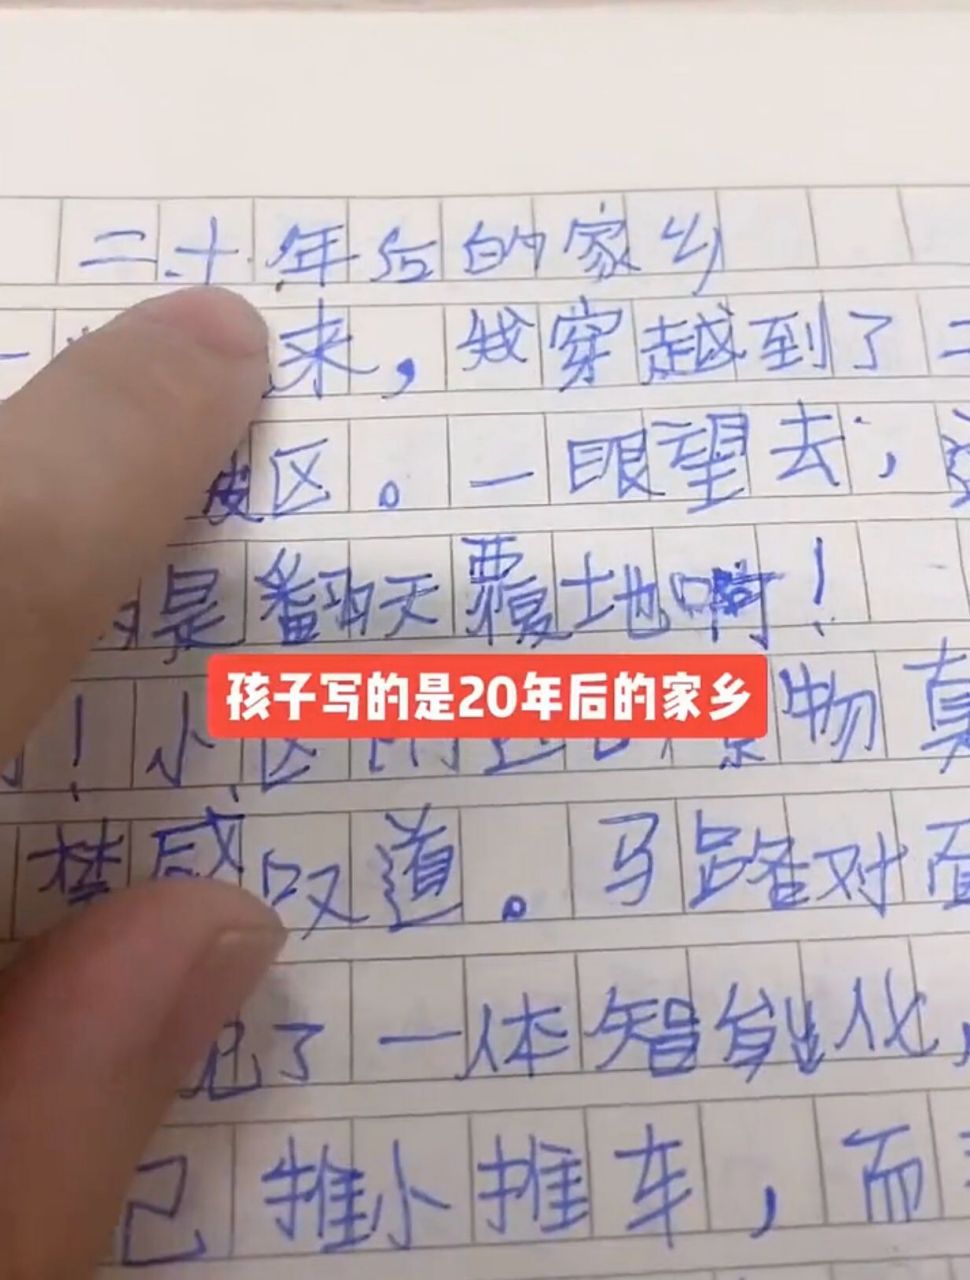 二十年后的家乡
来，我穿越到了二
区。一眼望去，这
是翻天覆地啊！
孩子写的是20年后的家乡
！小区附近的景物真
禁感叹道。马路对面
了一体智能化，
己推小推车，而